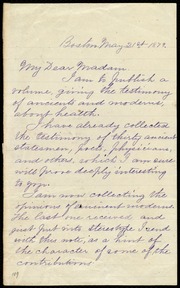 Boston May 21st 1879.
My Dear Madam
I am to publish a
volume, giving the testimony
of ancients and moderns,
about health.
I have already collected
the testimony of thirty ancient
statesmen, poets, physicians,
and others, which I am sure
will prove deeply interesting
to you.
I am now collecting the
opinions of eminent moderns.
The last one received and
just put into stereotype I send
with this note, as a hint of
the character of some of the
contributions.